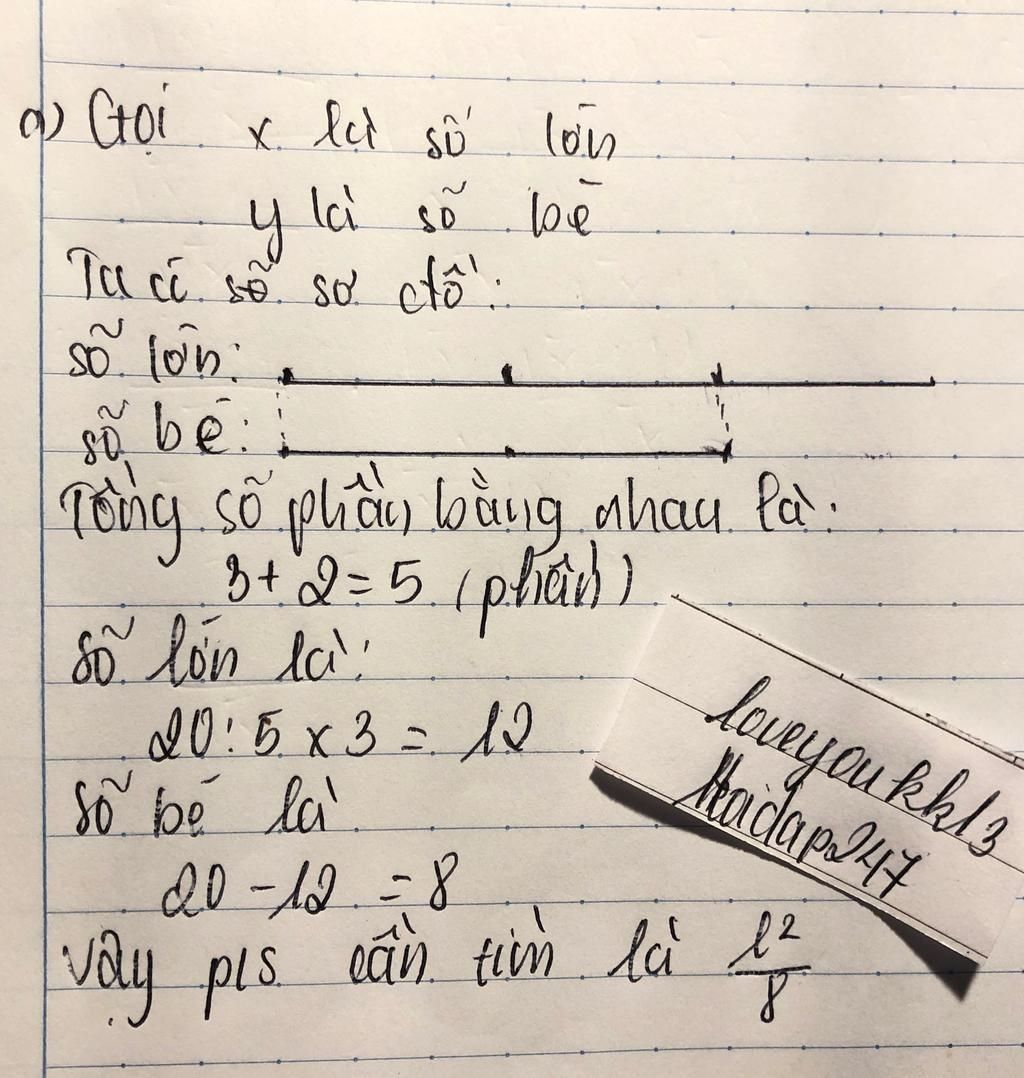 a) Gọi x là số lớn
y là số bé
Ta có số sơ đồ:
số lớn:
số bé:
Tổng số phần bằng nhau là:
3 + 2 = 5 (phần)
số lớn là:
20 : 5 x 3 = 12
số bé là
20 - 12 = 8
vậy pls cần tìm là 12/8
loveyoukk13
Hoidap247